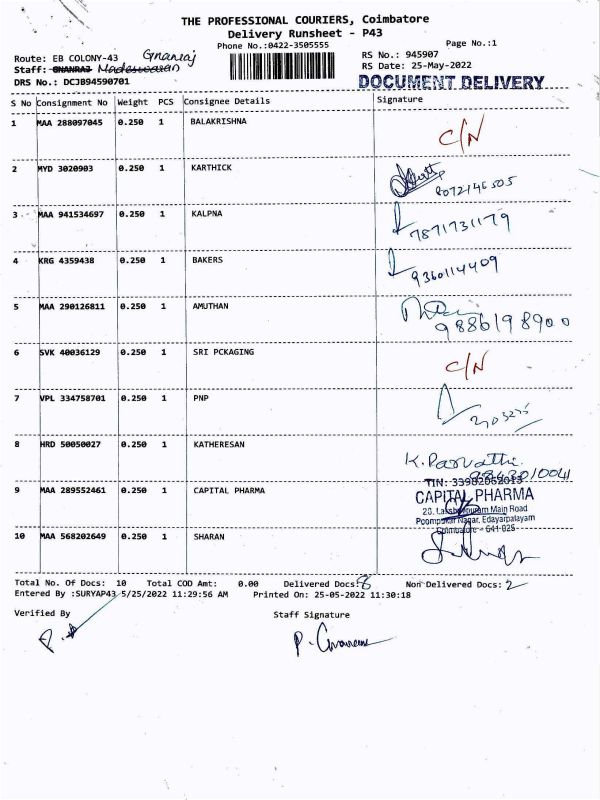 THE PROFESSIONAL COURIERS, Coimbatore
Delivery Runsheet - P43
Phone No.:0422-3505555
Page No.:1
Route: EB COLONY-43 Gnanraj
RS No.: 945907
Staff: GNANRAJ Madeswaran
RS Date: 25-May-2022
DRS No.: DCJB94590701
DOCUMENT DELIVERY
S No Consignment No Weight PCS Consignee Details Signature
1 MAA 288097045 0.250 1 BALAKRISHNA C/N
2 MYD 3020903 0.250 1 KARTHICK 8072146505
3 MAA 941534697 0.250 1 KALPNA 7871731179
4 KRG 4359438 0.250 1 BAKERS 9360114409
5 MAA 290126811 0.250 1 AMUTHAN 9886198900
6 SVK 40036129 0.250 1 SRI PCKAGING C/N
7 VPL 334758701 0.250 1 PNP
8 HRD 50050027 0.250 1 KATHERESAN K. Parvathi
9 MAA 289552461 0.250 1 CAPITAL PHARMA
TIN:
CAPITAL PHARMA
Main Road
Nagar, Edayarpalayam
Coimbatore - 641 025
10 MAA 568202649 0.250 1 SHARAN
Total No. Of Docs: 10 Total COD Amt: 0.00 Delivered Docs: 8 Non Delivered Docs: 2
Entered By :SURYAP43 5/25/2022 11:29:56 AM Printed On: 25-05-2022 11:30:18
Verified By Staff Signature